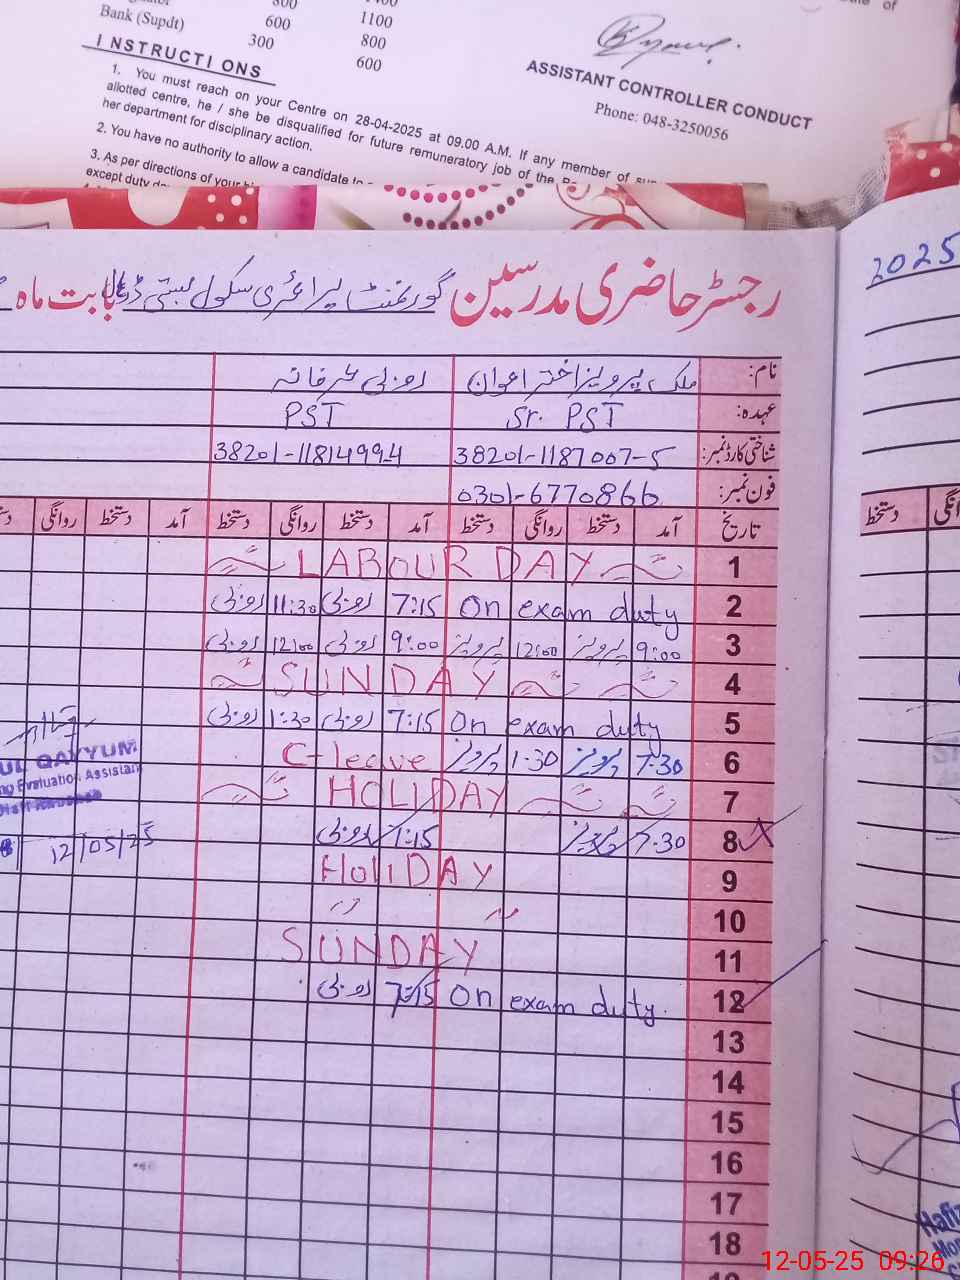 800
Bank (Supdt) 600 1100
300 800
600
INSTRUCTIONS
1. You must reach on your Centre on 28-04-2025 at 09.00 A.M. If any member of
allotted centre, he / she be disqualified for future remuneratory job of the
her department for disciplinary action.
2. You have no authority to allow a candidate to
3. As per directions of your
except duty
of
ASSISTANT CONTROLLER CONDUCT
Phone: 048-3250056
2025
رجسٹر حاضری مدرسین گورنمنٹ پرائمری سکول بستی بابت ماہ
نام: ملک پرویز اختر اعوان
عہدہ: Sr. PST PST
شناختی کارڈ نمبر: 38201-1187007-5 38201-1181499-4
فون نمبر: 0301-6770866
تاریخ آمد دستخط روانگی دستخط آمد دستخط روانگی دستخط آمد دستخط روانگی
دستخط
1 LABOUR DAY
2 On exam duty 7:15 11:30
3 9:00 پرویز 12:00 پرویز 9:00 12:00
4 SUNDAY
5 On exam duty 7:15 1:30
6 7:30 پرویز 1:30 پرویز C-leave
7 HOLIDAY
8 7:30 پرویز 7:15
9 HOLIDAY
10 〃 〃
11 SUNDAY
12 On exam duty 7:15
13
14
15
16
17
18
UL QAYYUM
ng Evaluation Assistant
12/05/25
12-05-25 09:26